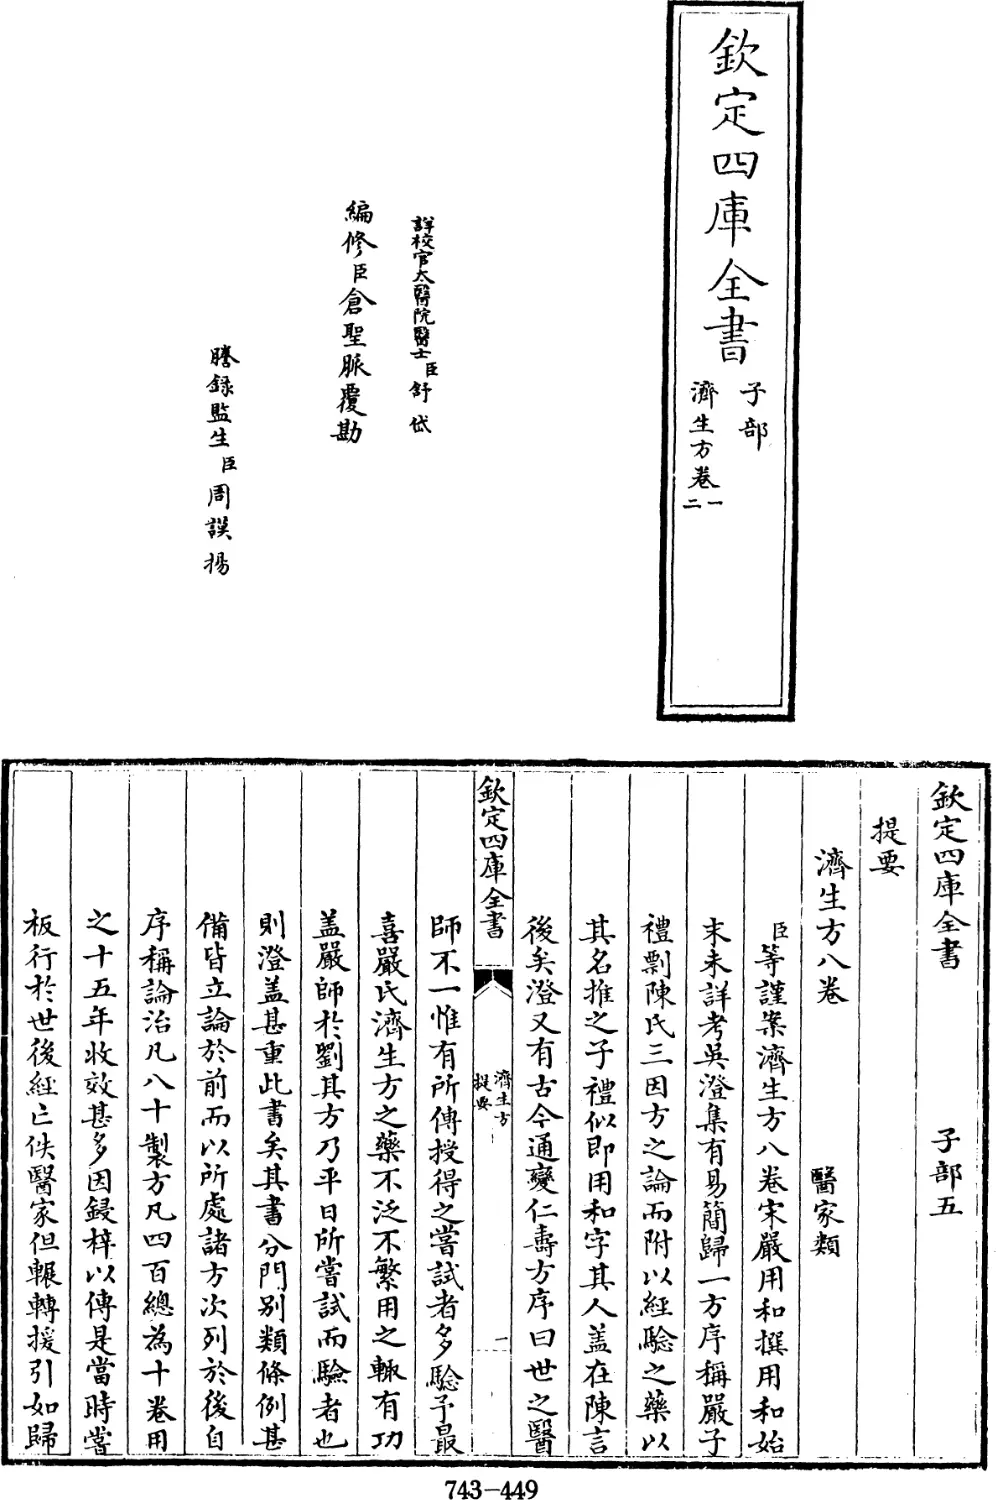 欽定四庫全書
子部
濟生方卷一
二
詳校官太醫院醫士臣舒岱
編修臣倉聖脈覆勘
謄錄監生臣周謨揚
欽定四庫全書 子部五
提要
濟生方八卷 醫家類
臣等謹案濟生方八卷宋嚴用和撰用和始
末未詳考吳澄集有易簡歸一方序稱嚴子
禮剽陳氏三因方之論而附以經驗之藥以
其名推之子禮似即用和字其人盖在陳言
後矣澄又有古今通變仁壽方序曰世之醫
欽定四庫全書
濟生方
提要
一
師不一惟有所傳授得之嘗試者多驗予最
喜嚴氏濟生方之藥不泛不繁用之輒有功
盖嚴師於劉其方乃平日所嘗試而驗者也
則澄盖甚重此書矣其書分門別類條例甚
備皆立論於前而以所處諸方次列於後自
序稱論治凡八十製方凡四百總為十卷用
之十五年收效甚多因鋟梓以傳是當時嘗
板行於世後經亡佚醫家但輾轉援引如歸
743-449